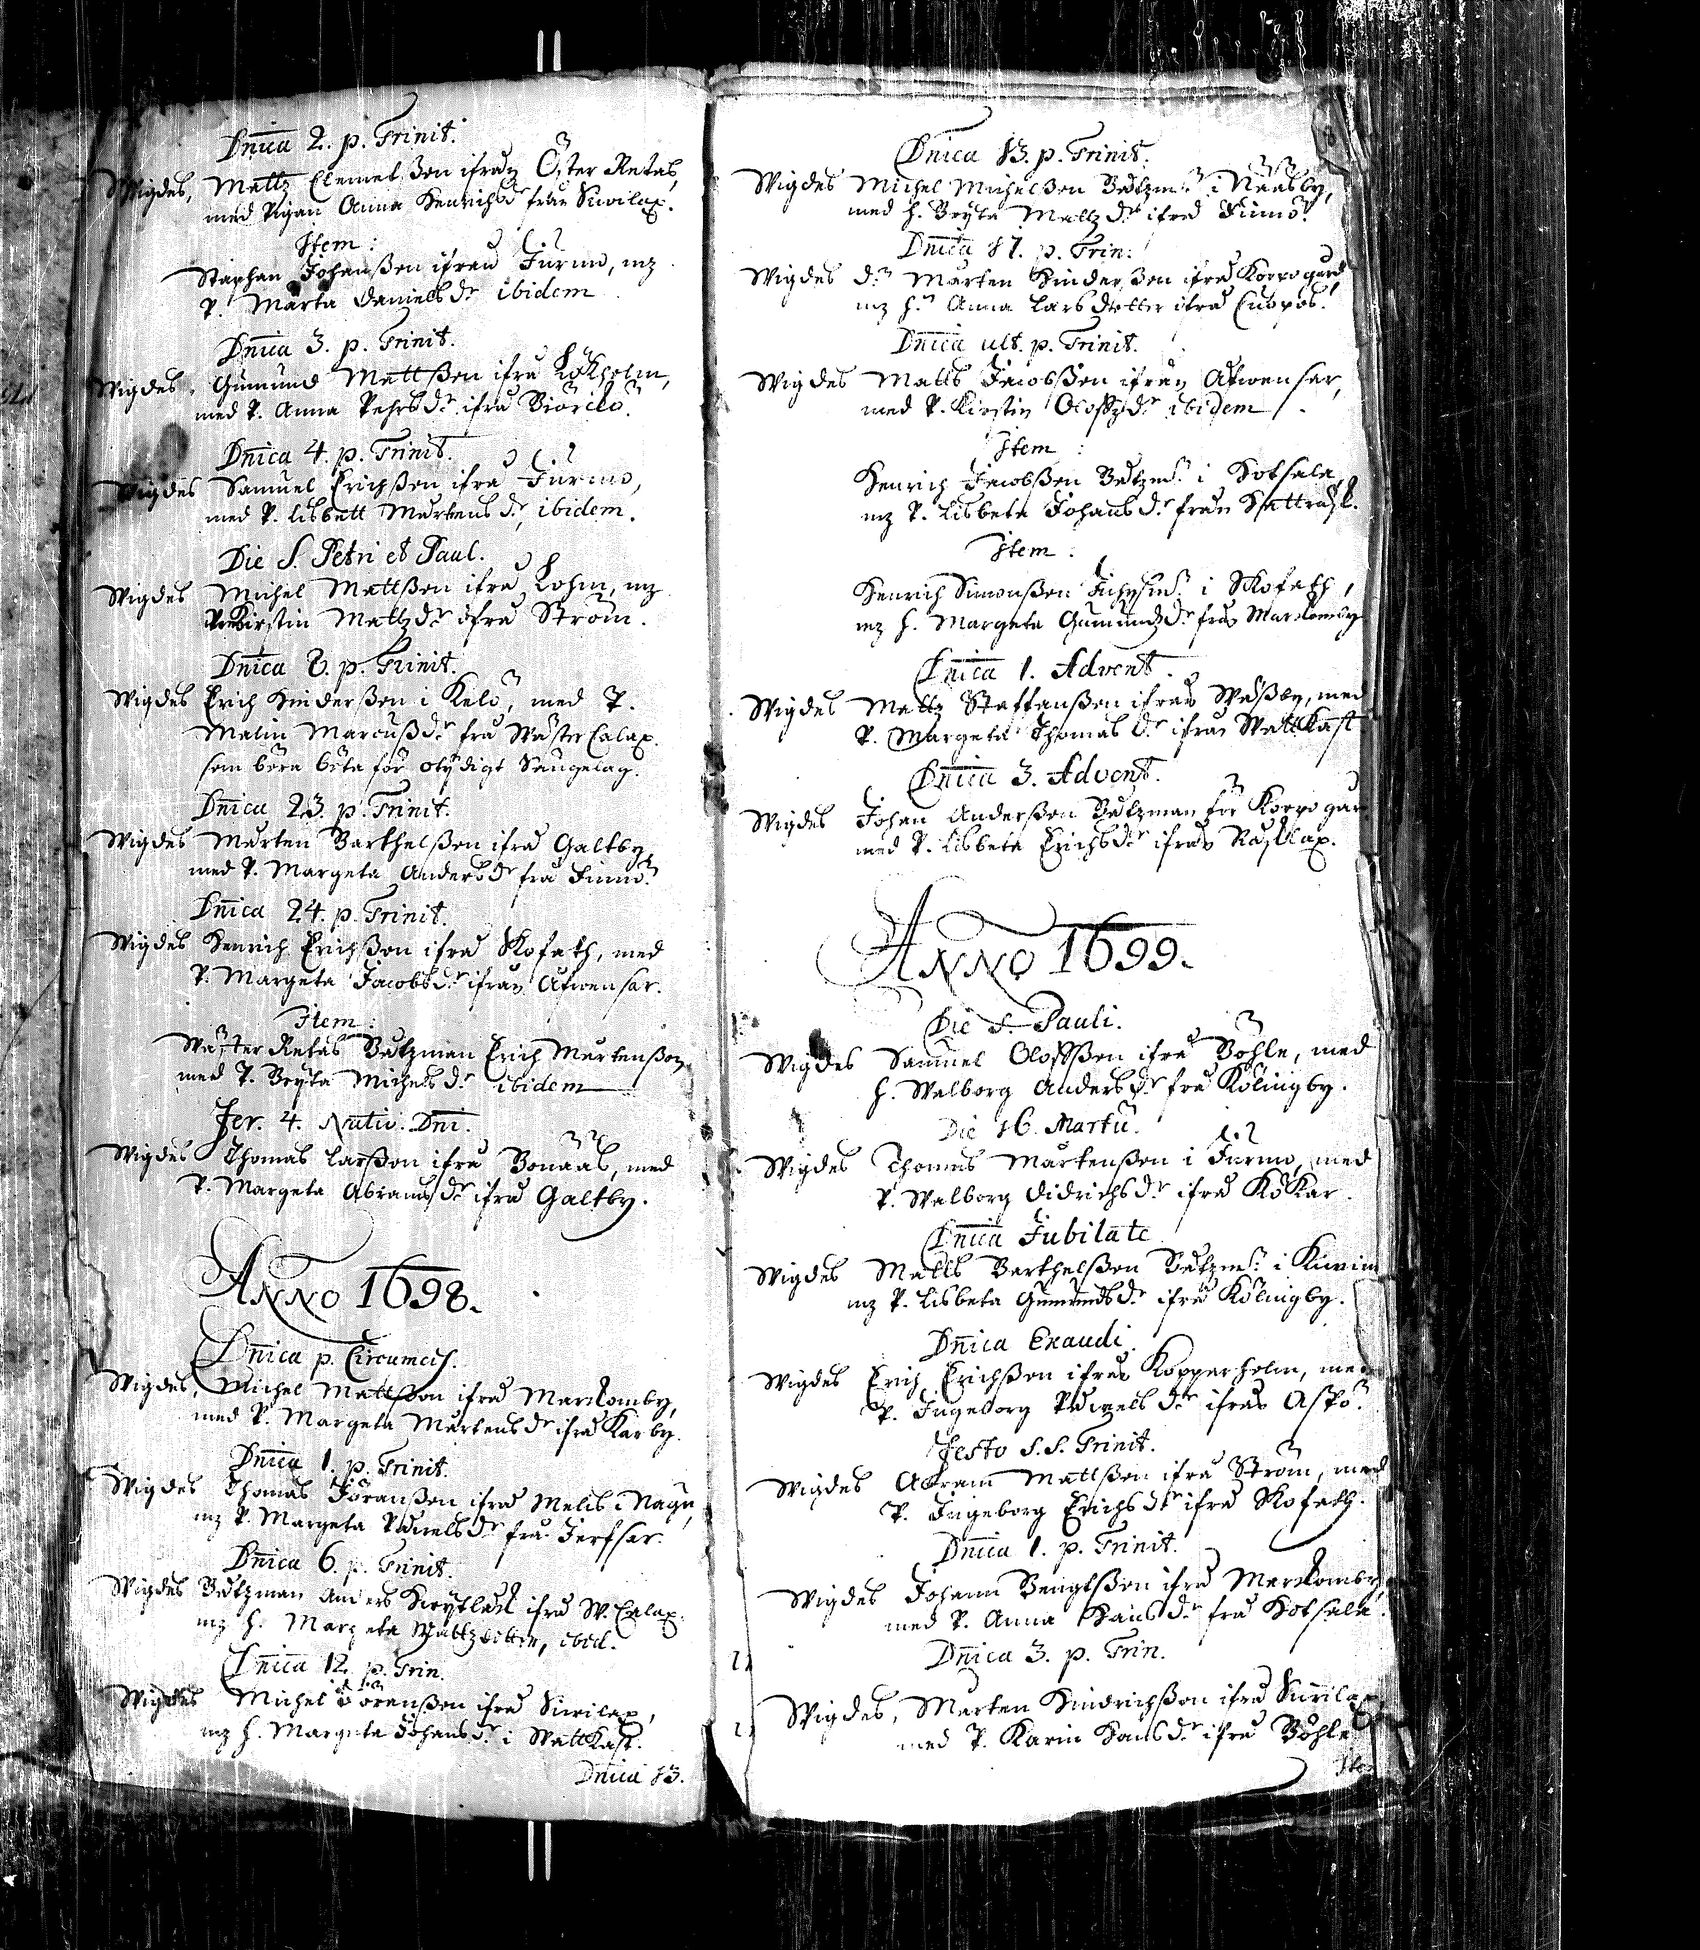 Dnica 2. p. Trinit.
Wigdes, Mattz Clemetßon ifrån Öster Retas,
med Pigan Anna Henrichsdr från Kirilax.
Item:
Staphan Johanßon ifrån Jurmo, mz
P. Marta Danielsdr ibidem
Dnica 3. p. Trinit.
Wigdes, Gumund Mattßon ifrå Lökholm,
med P. Anna Pehrsdr ifrå Biörkö.
Dnica 4. p. Trinit.
Wigdes Samuel Erichßon ifrå Jurmo,
med P. Lisbett Mårtensdr, ibidem.
Die S. Petri et Paul.
Wigdes Michel Mattßon ifrå Lohm, mz
P. Kirstin Mattzdr ifrå Ström.
Dnica 8. p. Trinit.
Wigdes Erich Hinderßon i Kelö, med P.
Malin Marcusdr frå Wäster Calax.
som böra böta för otijdigt Sängelag.
Dnica 23. p. Trinit.
Wigdes Mårten Barthelßon ifrå Galtby,
med P. Margeta Andersdr frå Finnö.
Dnica 24. p. Trinit.
Wigdes Henrich Erichßon ifrå Kofath, med
P. Margeta Jacobsdr ifrån Afwensar.
Item:
Wäster Retas Båtzman Erich Mårtenßon,
med P. Bryta Michelsdr ibidem
Fer. 4. Nativ. Dni.
Wigdes Thomas Larßon ifrå Bonääs, med
P. Margeta Abramsdr ifrå Galtby.
ANNO 1698.
Dnica p. Circumcis.
Wigdes, Michel Mattßon ifrå Markomby,
med P. Margeta Mårtensdr ifrå Karby.
Dnica 1. p. Trinit.
Wigdes Thomas Jöranßon ifrå Melis i Nagu,
mz P. Margeta Påwelsdr frå Jerfsar.
Dnica 6. p. Trinit.
Wigdes Båtzman Anders ifrå W. Calax
mz h. Margeta Mattzdotter, ibid.
Dnica 12. p. Trin.
Wigdes Michel Jörenßon ifrå Kirilax,
mz h. Margeta Johansdr i Wattkast.
Dnica 13.
Dnica 13. p. Trinit.
Wigdes Michel Michelßon Båtzm. i Näåsby,
med h. Bryta Mattzdr ifrå Finnö.
Dnica 17. p. Trin.
Wigdes dr Mårten Hinderßon ifrå Korpogård,
mz h. Anna Larsdotter ifrå
Dnica ult. p. Trinit.
Wigdes Matts Jacobßon ifrån Afwensar,
med P. Kirstin Oloffzdr ibidem.
Item:
Henrich Jacobßon Båtzm. i Kotsala,
mz P. Lisbeta Johansdr från Kattrask.
Item:
Henrich Simonßon i Kofath,
mz h. Margeta Gumundzdr från Markomby
Dnica 1. Advent.
Wigdes Mattz Staffanßon ifrån Wåßby, med
P. Margeta Thomasdr ifrån Wattkast
Dnica 3. Advent.
Wigdes Johan Anderßon Båtzman för Korpogår
med P. Lisbeta Erichsdr ifrån Rasklax.
ANNO 1699.
Die S. Pauli.
Wigdes Samuel Oloffßon ifrå Böhle, med
h. Walborg Andersdr frå Kölingby.
Die 16. Martii.
Wigdes Thomas Mårtenßon i Jurmo, med
P. Walborg Didrichsdr ifrå Kökar.
Dnica Jubilate
Wigdes Matts Barthelßon Båtzm. i
mz P. Lisbeta Gumundsdr ifrå Kölingby.
Dnica Exaudi.
Wigdes Erich Erichßon ifrån Kopparholm, med
P. Ingeborg Påwelsdr ifrån Aspö.
Festo S.S. Trinit.
Wigdes Abram Mattßon ifrå Ström, med
P. Ingeborg Erichsdr ifrå Kofath.
Dnica 1. p. Trinit.
Wigdes Johann Bengtßon ifrå Markomby,
med P. Anna Hansdr frå Kotsala.
Dnica 3. p. Trin.
Wigdes, Mårten Hindrichßon ifrå Kirilax
med P. Karin Hansdr ifrå Böhle
Item